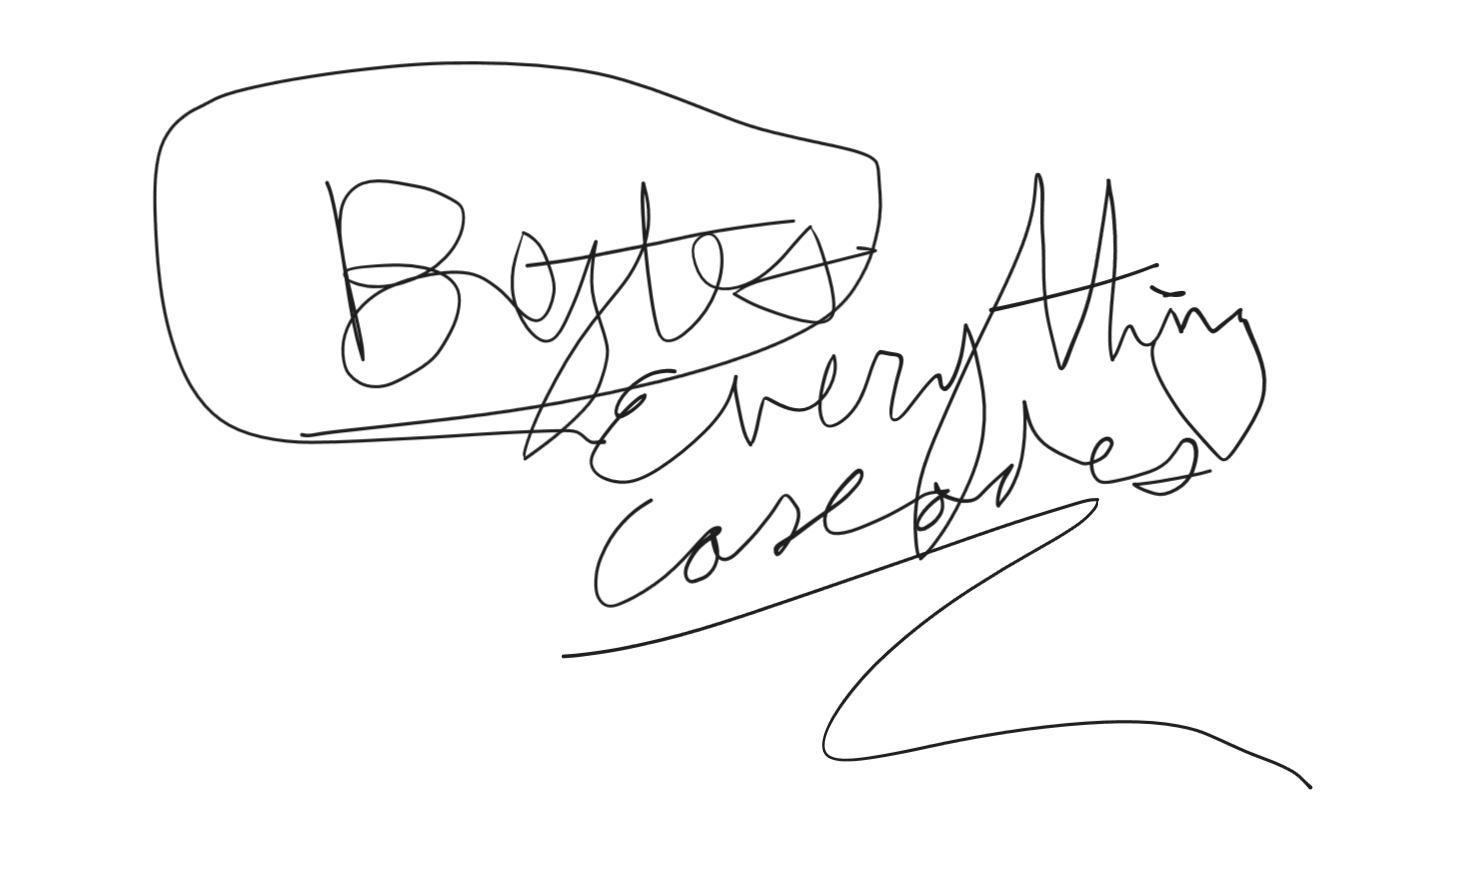 Bytes
Everything
cascades